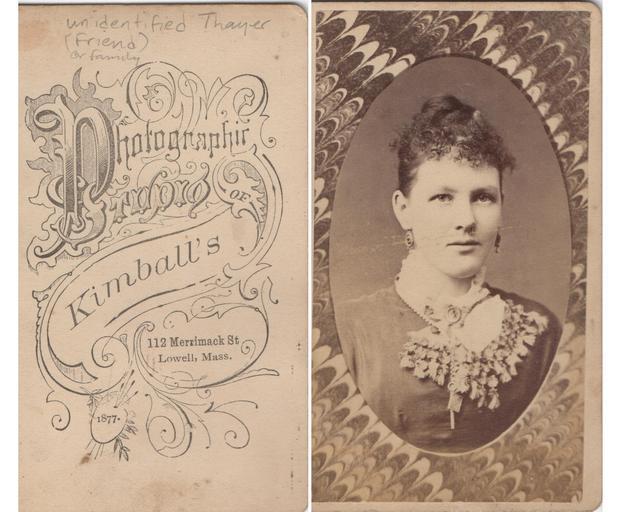 unidentified Thayer
(friend)
or family
Photographic
Studio
OF
Kimball's
112 Merrimack St
Lowell, Mass.
1877.